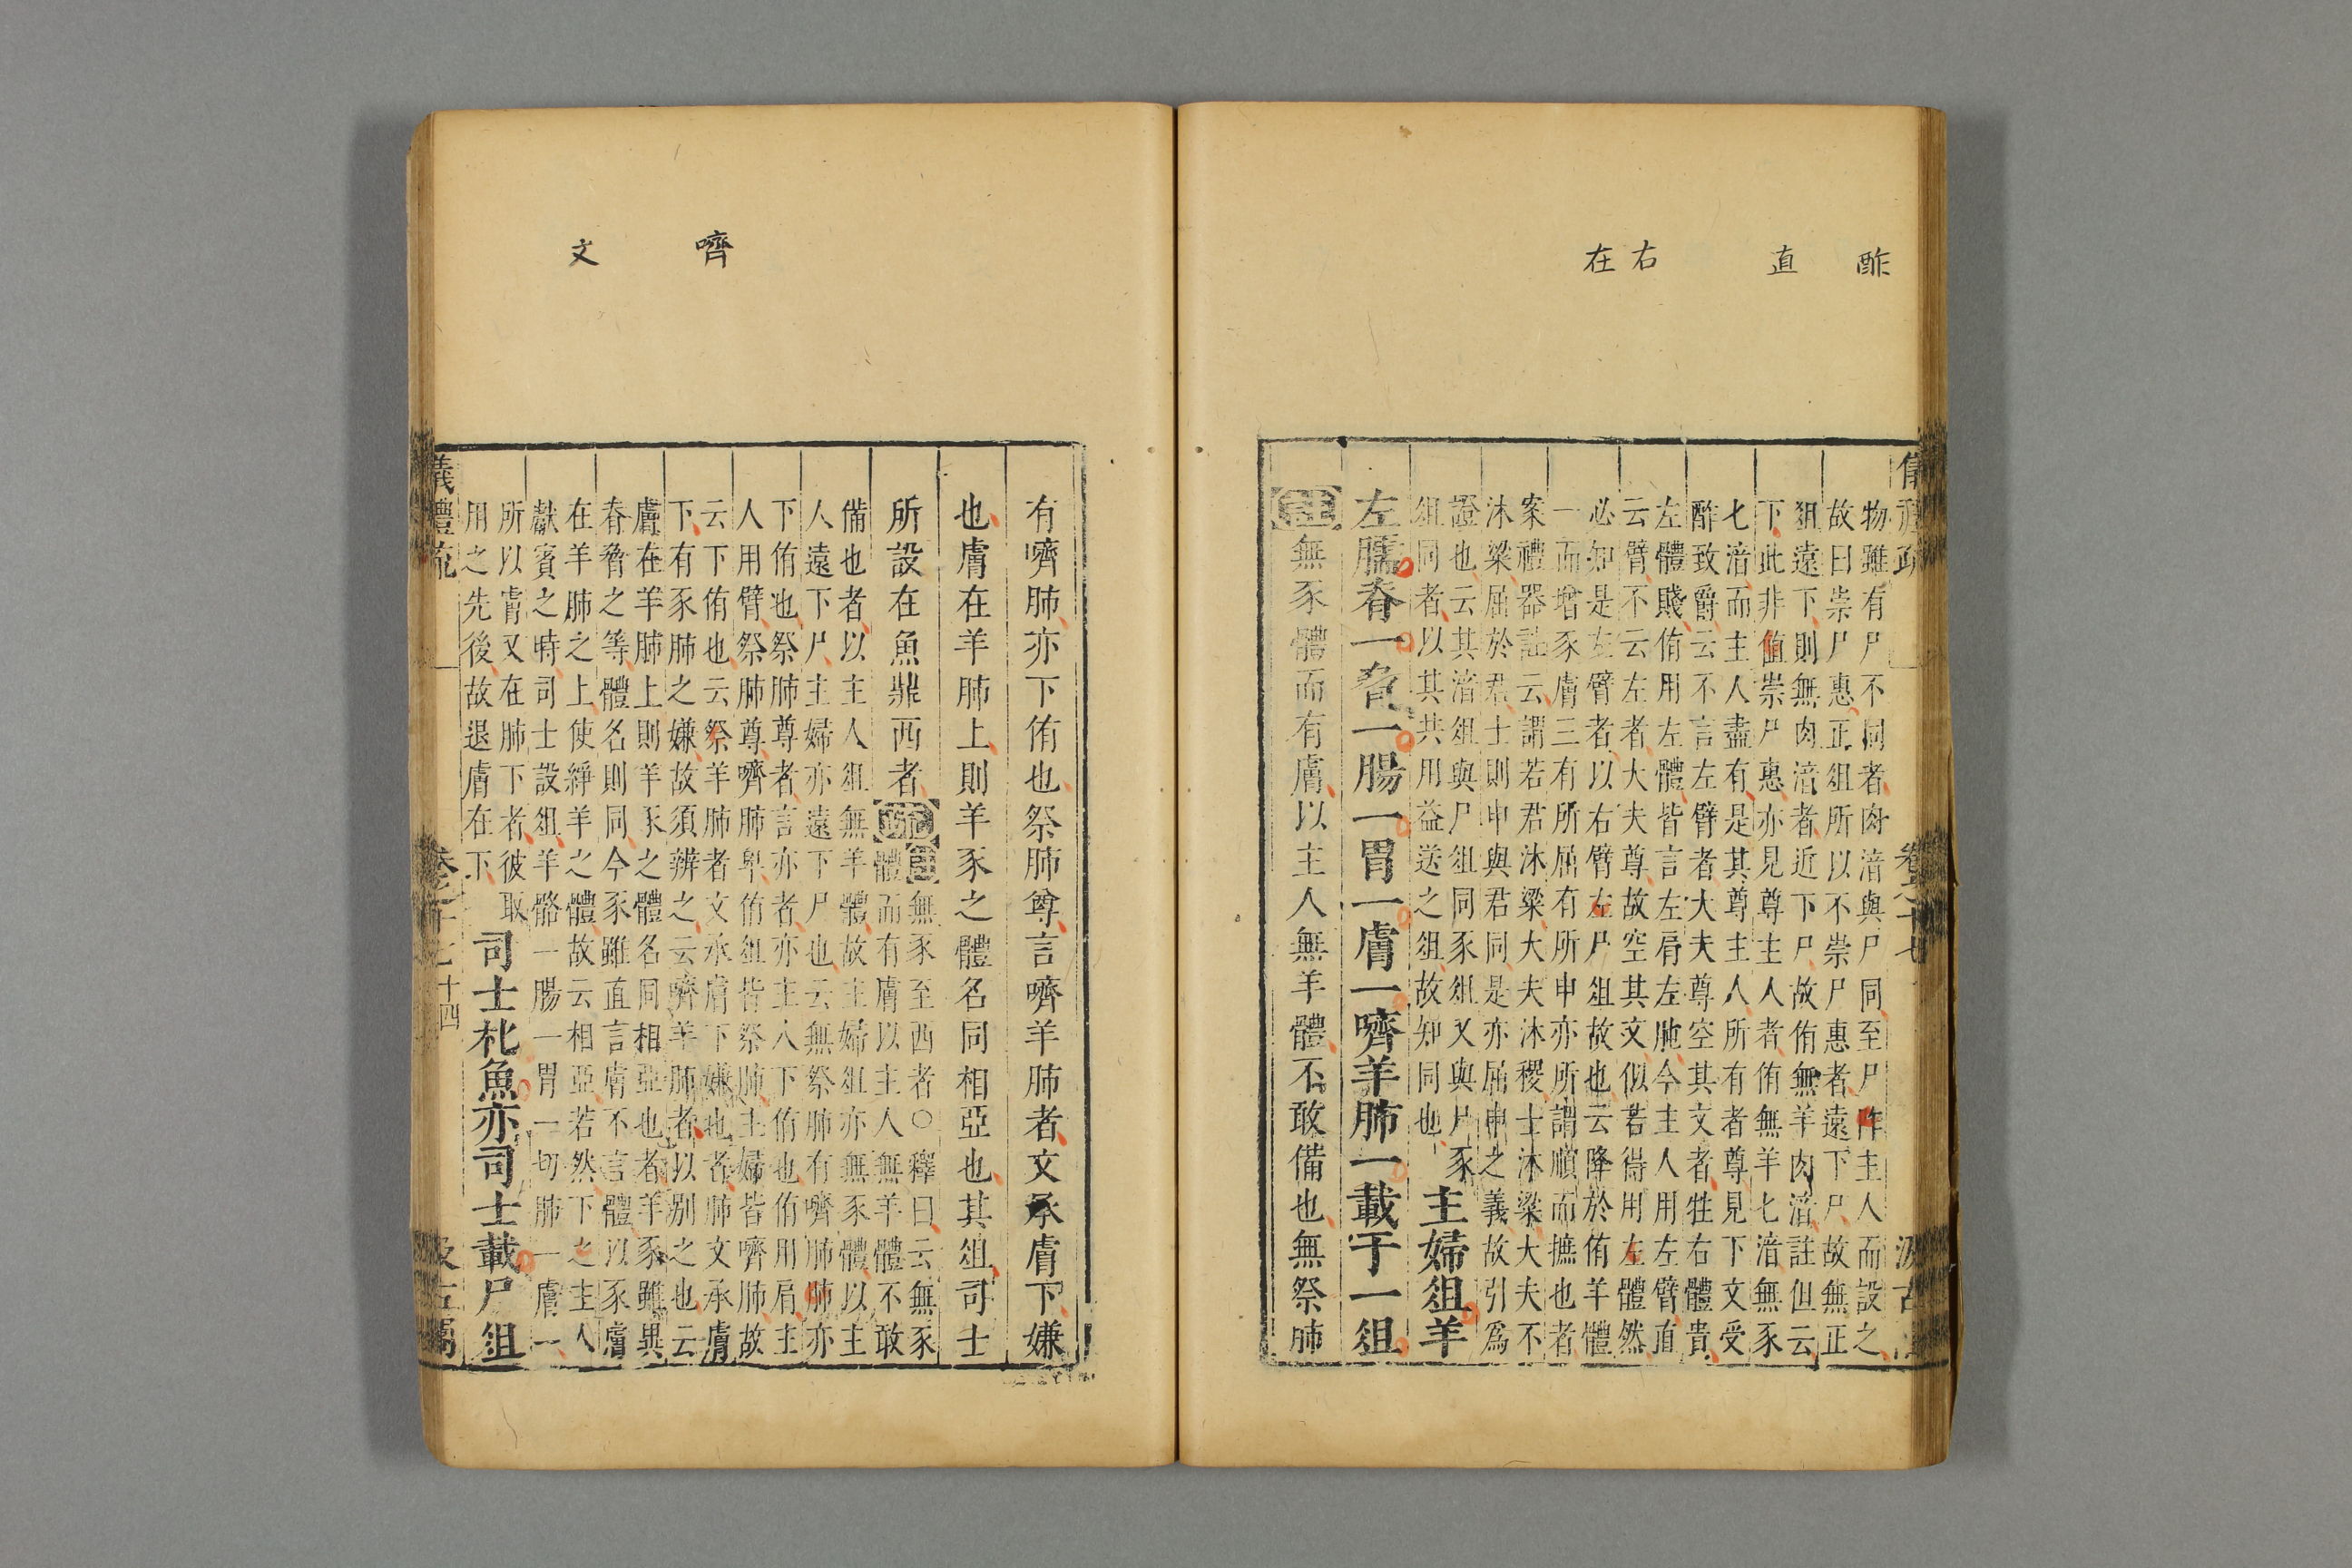 酢
直
右
在
物雖有尸不同者肉湆與尸同至尸作主人而設之
故曰崇尸惠正俎所以不崇尸惠者遠下尸故無正
俎遠下則無肉湆者近下尸故侑無羊肉湆註但云
下此非值崇尸惠亦見尊主人者侑無羊七湆無豕
七湆而主人盡有是其尊主人所有者尊見下文受
酢致爵云不言左臂者大夫尊空其文者牲右體貴
左體賤侑用左體皆言左肩左肫今主人用左臂直
云臂不云左者大夫尊故空其文似若得用左體然
必知是左臂者以右臂左尸俎故也云降於侑羊體
一而增豕膚三有所屈有所申亦所謂順而摭也者
案禮器註云謂若君沐粱大夫沐稷士沐粱大夫不
沐粱屈於君士則申與君同是亦屈申之義故引爲
證也云其湆俎與尸俎同豕俎又與尸豕
俎同者以其共用益送之俎故知同也
主婦俎羊
左臑脊一脅一腸一胃一膚一嚌羊肺一載于一俎
註無豕體而有膚以主人無羊體不敢備也無祭肺
儀禮疏
卷之十七
汲古
嚌
文
有嚌肺亦下侑也祭肺尊言嚌羊肺者文承膚下嫌
也膚在羊肺上則羊豕之體名同相亞也其俎司士
所設在魚鼎西者
疏
註無豕至西者○釋曰云無豕
體而有膚以主人無羊體不敢
備也者以主人俎無羊體故主婦俎亦無豕體以主
人遠下尸主婦亦遠下尸也云無祭肺有嚌肺肺亦
下侑也祭肺尊者言亦者亦主人下侑也侑用肩主
人用臂祭肺尊嚌肺卑侑俎皆祭肺主婦皆嚌肺故
云下侑也云祭羊肺者文承膚下嫌也者肺文承膚
下有豕肺之嫌故須辨之云嚌羊肺者以別之也云
膚在羊肺上則羊豕之體名同相亞也者羊豕雖異
脊脅之等體名則同今豕雖直言膚不言體以豕膚
在羊肺之上使繹羊之體故云相亞若然下之主人
獻賓之時司士設俎羊骼一腸一胃一切肺一膚一
所以膚又在肺下者彼取
用之先後故退膚在下
司士朼魚亦司士載尸俎
儀禮疏
卷之十七
十四
汲古閣